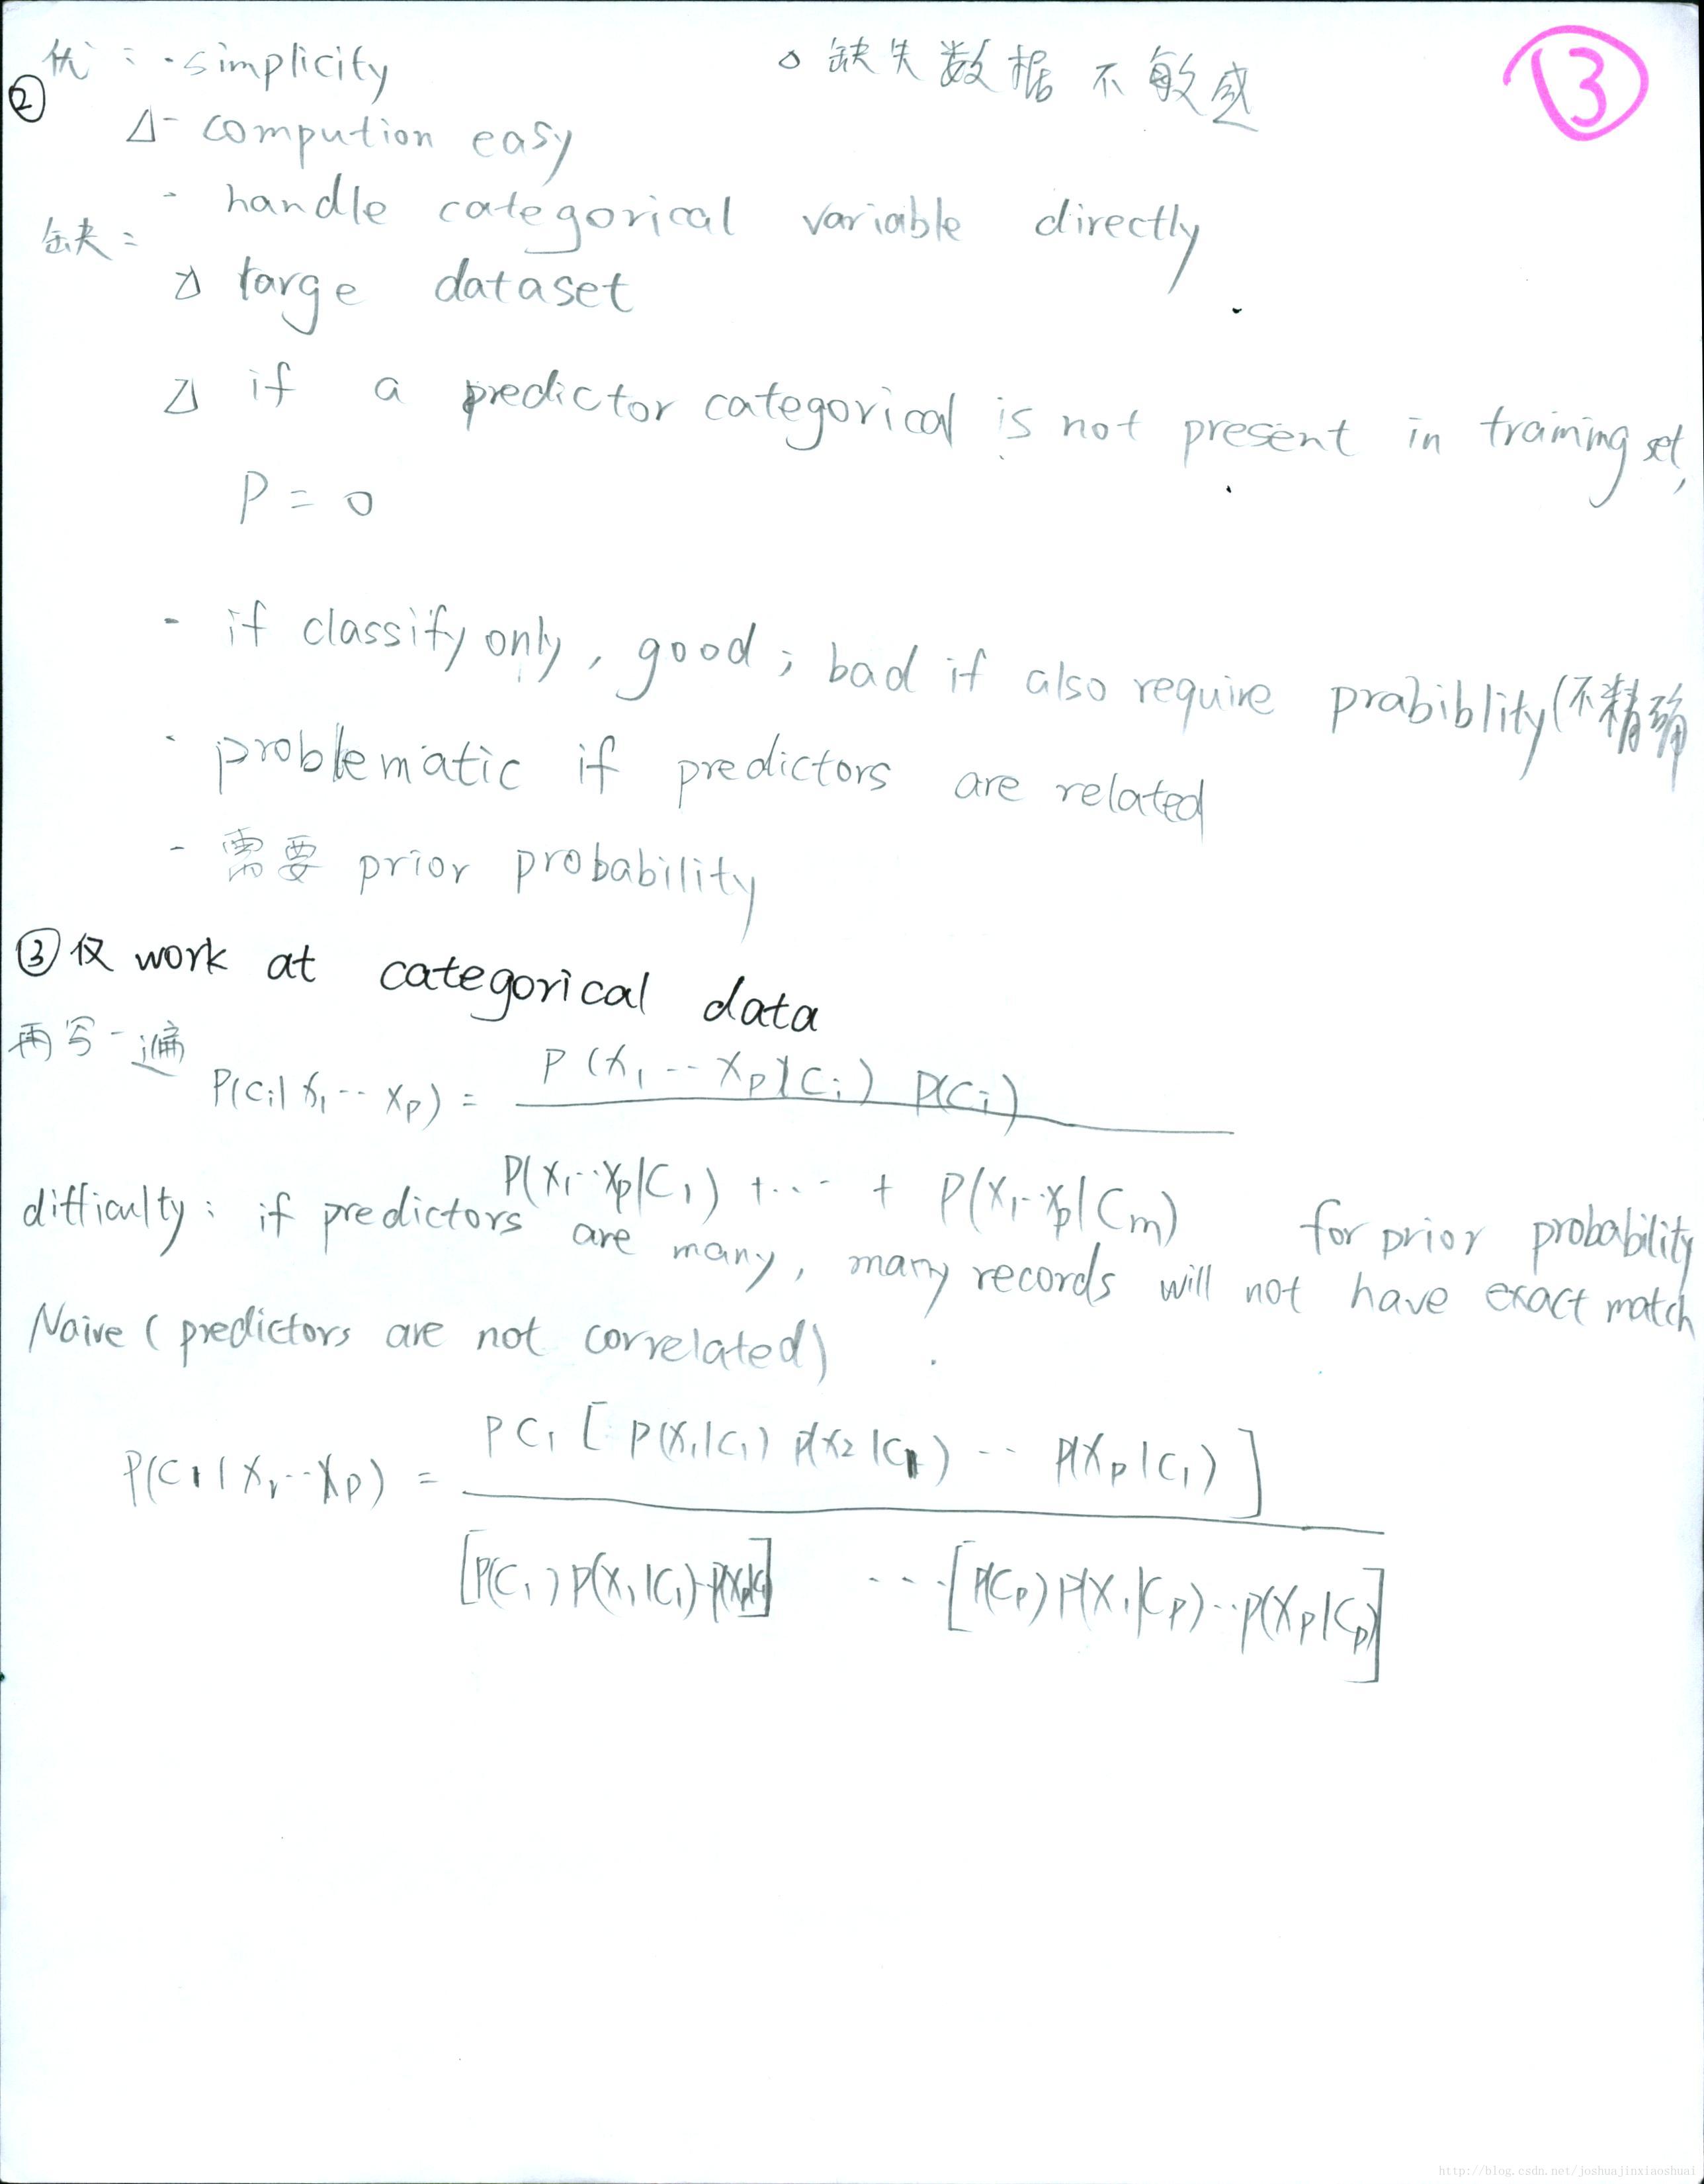 优：·simplicity
△缺失数据 不敏感
③
②
△- compution easy
- handle categorical variable directly
缺：
△ large dataset
△ if a predictor categorical is not present in training set,
P = 0
- if classify only, good; bad if also require prabiblity(不精确
- problematic if predictors are related
- 需要 prior probability
③仅 work at categorical data
再写一遍
P(Ci| X1 -- Xp) = P(X1 -- Xp|Ci) P(Ci)
P(X1--Xp|C1) + ... + P(X1--Xp|Cm)
difficulty: if predictors are many, many records will not have exact match for prior probability
Naive (predictors are not correlated)
P(C1|X1--Xp) = PC1 [P(X1|C1) P(X2|C1) -- P(Xp|C1)]
[P(C1)P(X1|C1)--P(Xp|C1)] ---[P(Cp)P(X1|Cp)--P(Xp|Cp)]
http://blog.csdn.net/joshuajinxiaoshuai